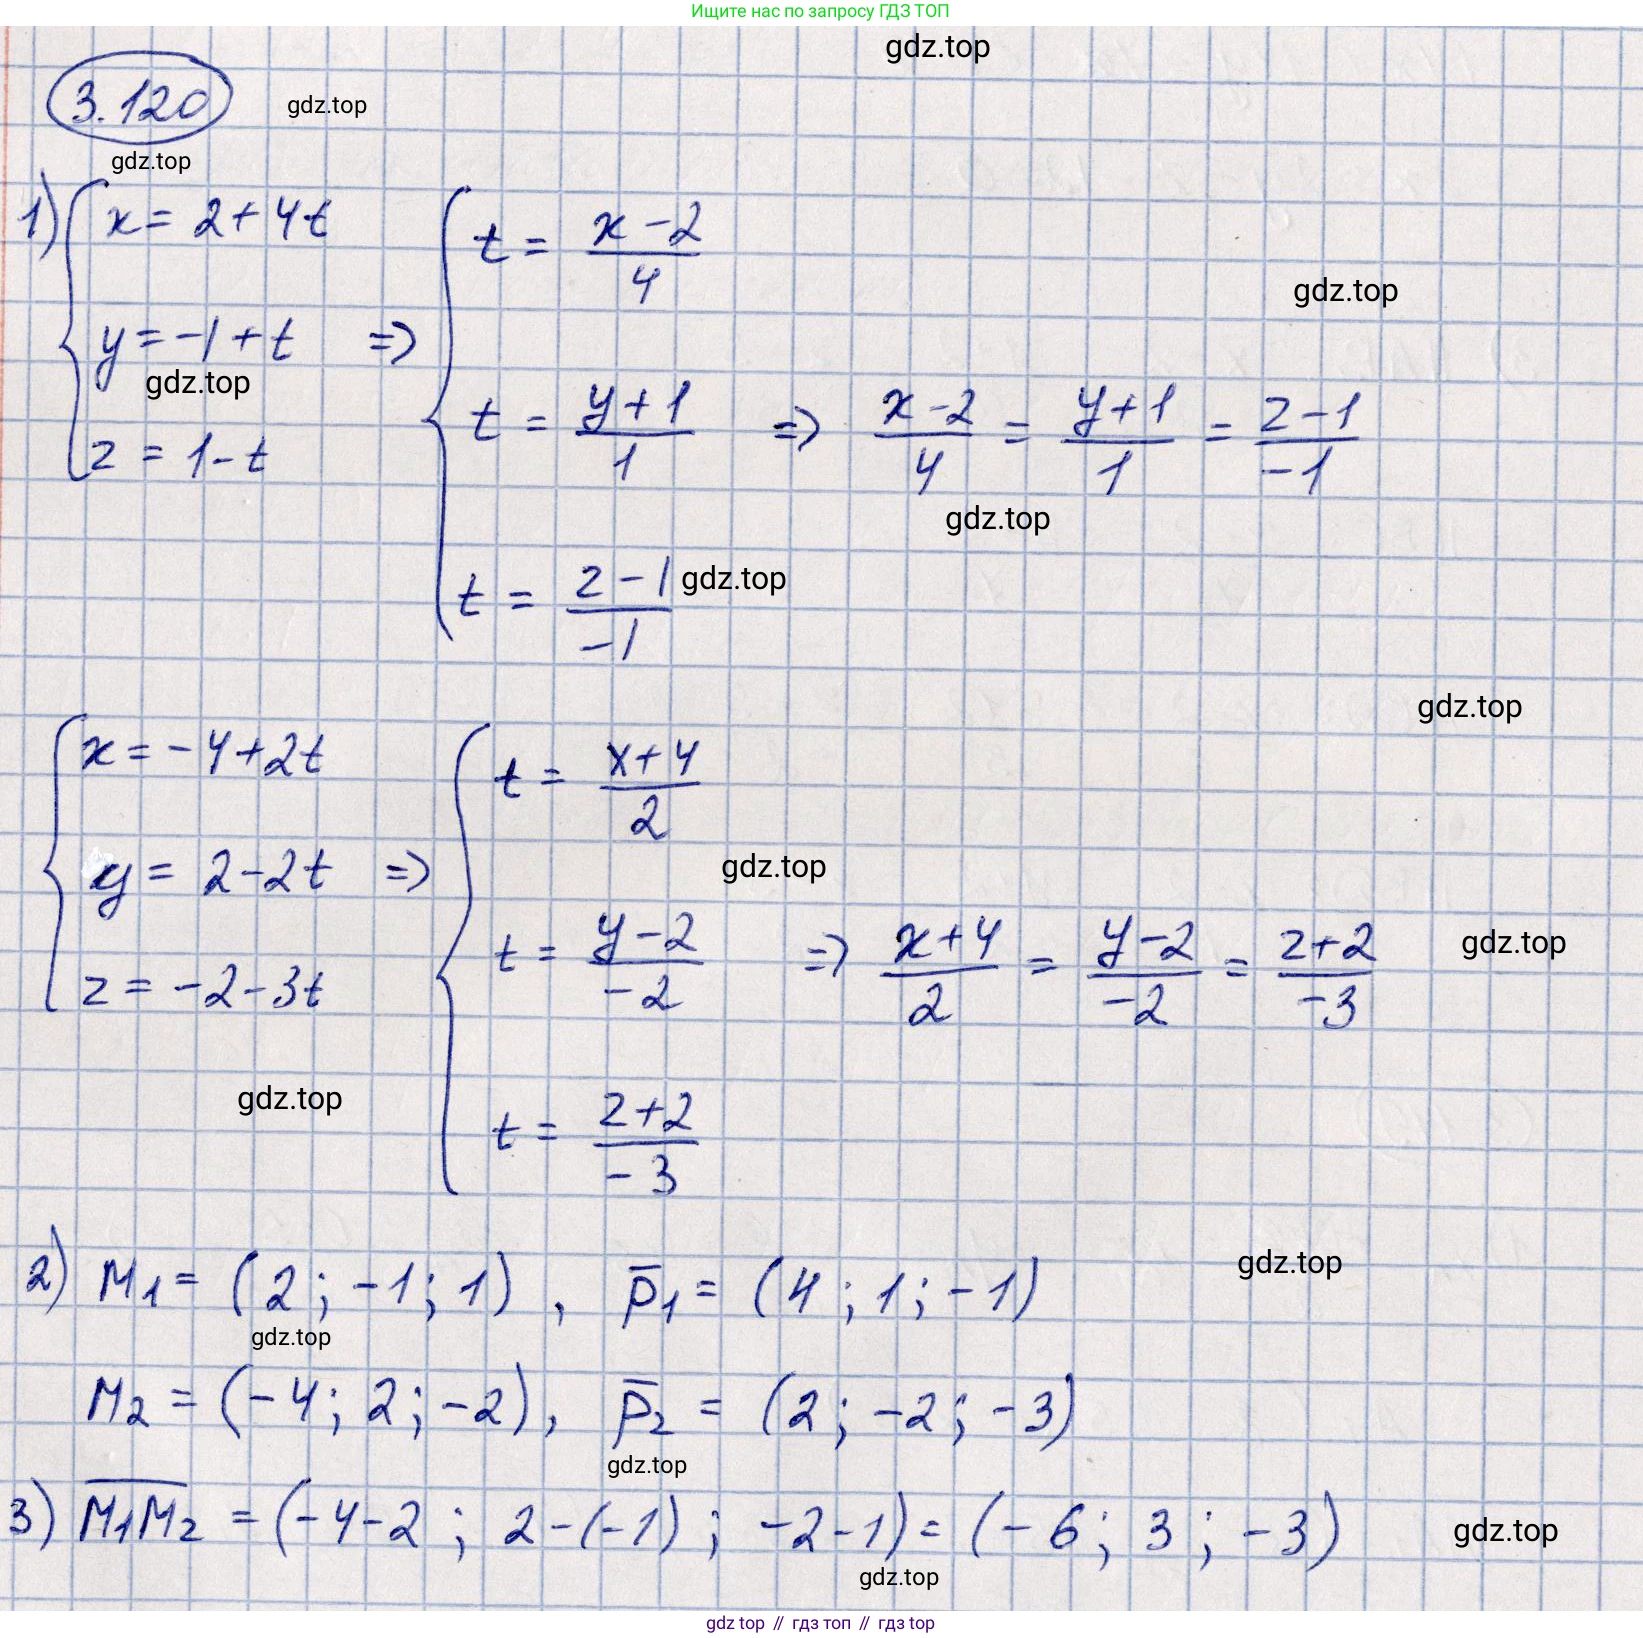 Ищите нас по запросу ГДЗ ТОП
gdz.top
3.120 gdz.top
gdz.top
1) { x = 2 + 4t
y = -1 + t
z = 1 - t
=> { t = (x - 2)/4
t = (y + 1)/1
t = (z - 1)/-1
=> (x - 2)/4 = (y + 1)/1 = (z - 1)/-1
gdz.top
gdz.top
gdz.top
gdz.top
gdz.top
{ x = -4 + 2t
y = 2 - 2t
z = -2 - 3t
=> { t = (x + 4)/2
t = (y - 2)/-2
t = (z + 2)/-3
=> (x + 4)/2 = (y - 2)/-2 = (z + 2)/-3
gdz.top
gdz.top
gdz.top
gdz.top
2) M₁ = (2; -1; 1), p̅₁ = (4; 1; -1)
gdz.top
M₂ = (-4; 2; -2), p̅₂ = (2; -2; -3)
gdz.top
3) M̅₁M̅₂ = (-4-2; 2-(-1); -2-1) = (-6; 3; -3)
gdz.top
gdz.top
gdz top // гдз топ // гдз top